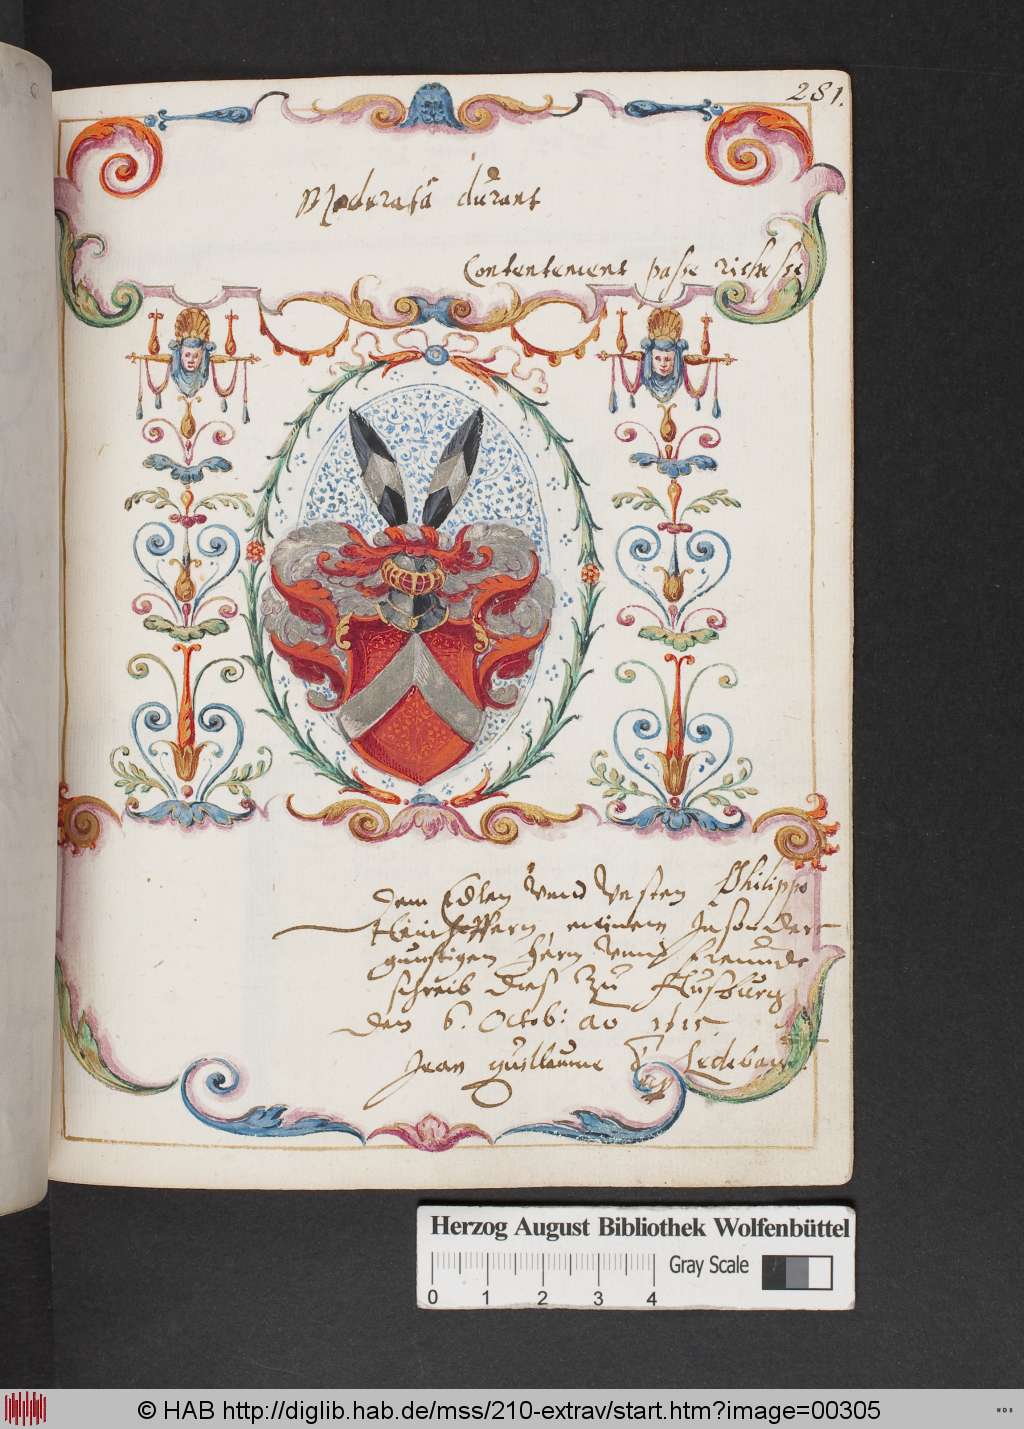 281.
Moderata durant
Contentement passe richesse
dem Edlen Vnnd Vesten Philippo
Hainhoffern, meinem Insonders
gunstigen herrn Vnnd freunde
schreib dies Zu Ausburg
den 6. Octob: Ao 1615.
Jean guillaume Ledebaur
mp
Herzog August Bibliothek Wolfenbüttel
Gray Scale
0 1 2 3 4
© HAB http://diglib.hab.de/mss/210-extrav/start.htm?image=00305